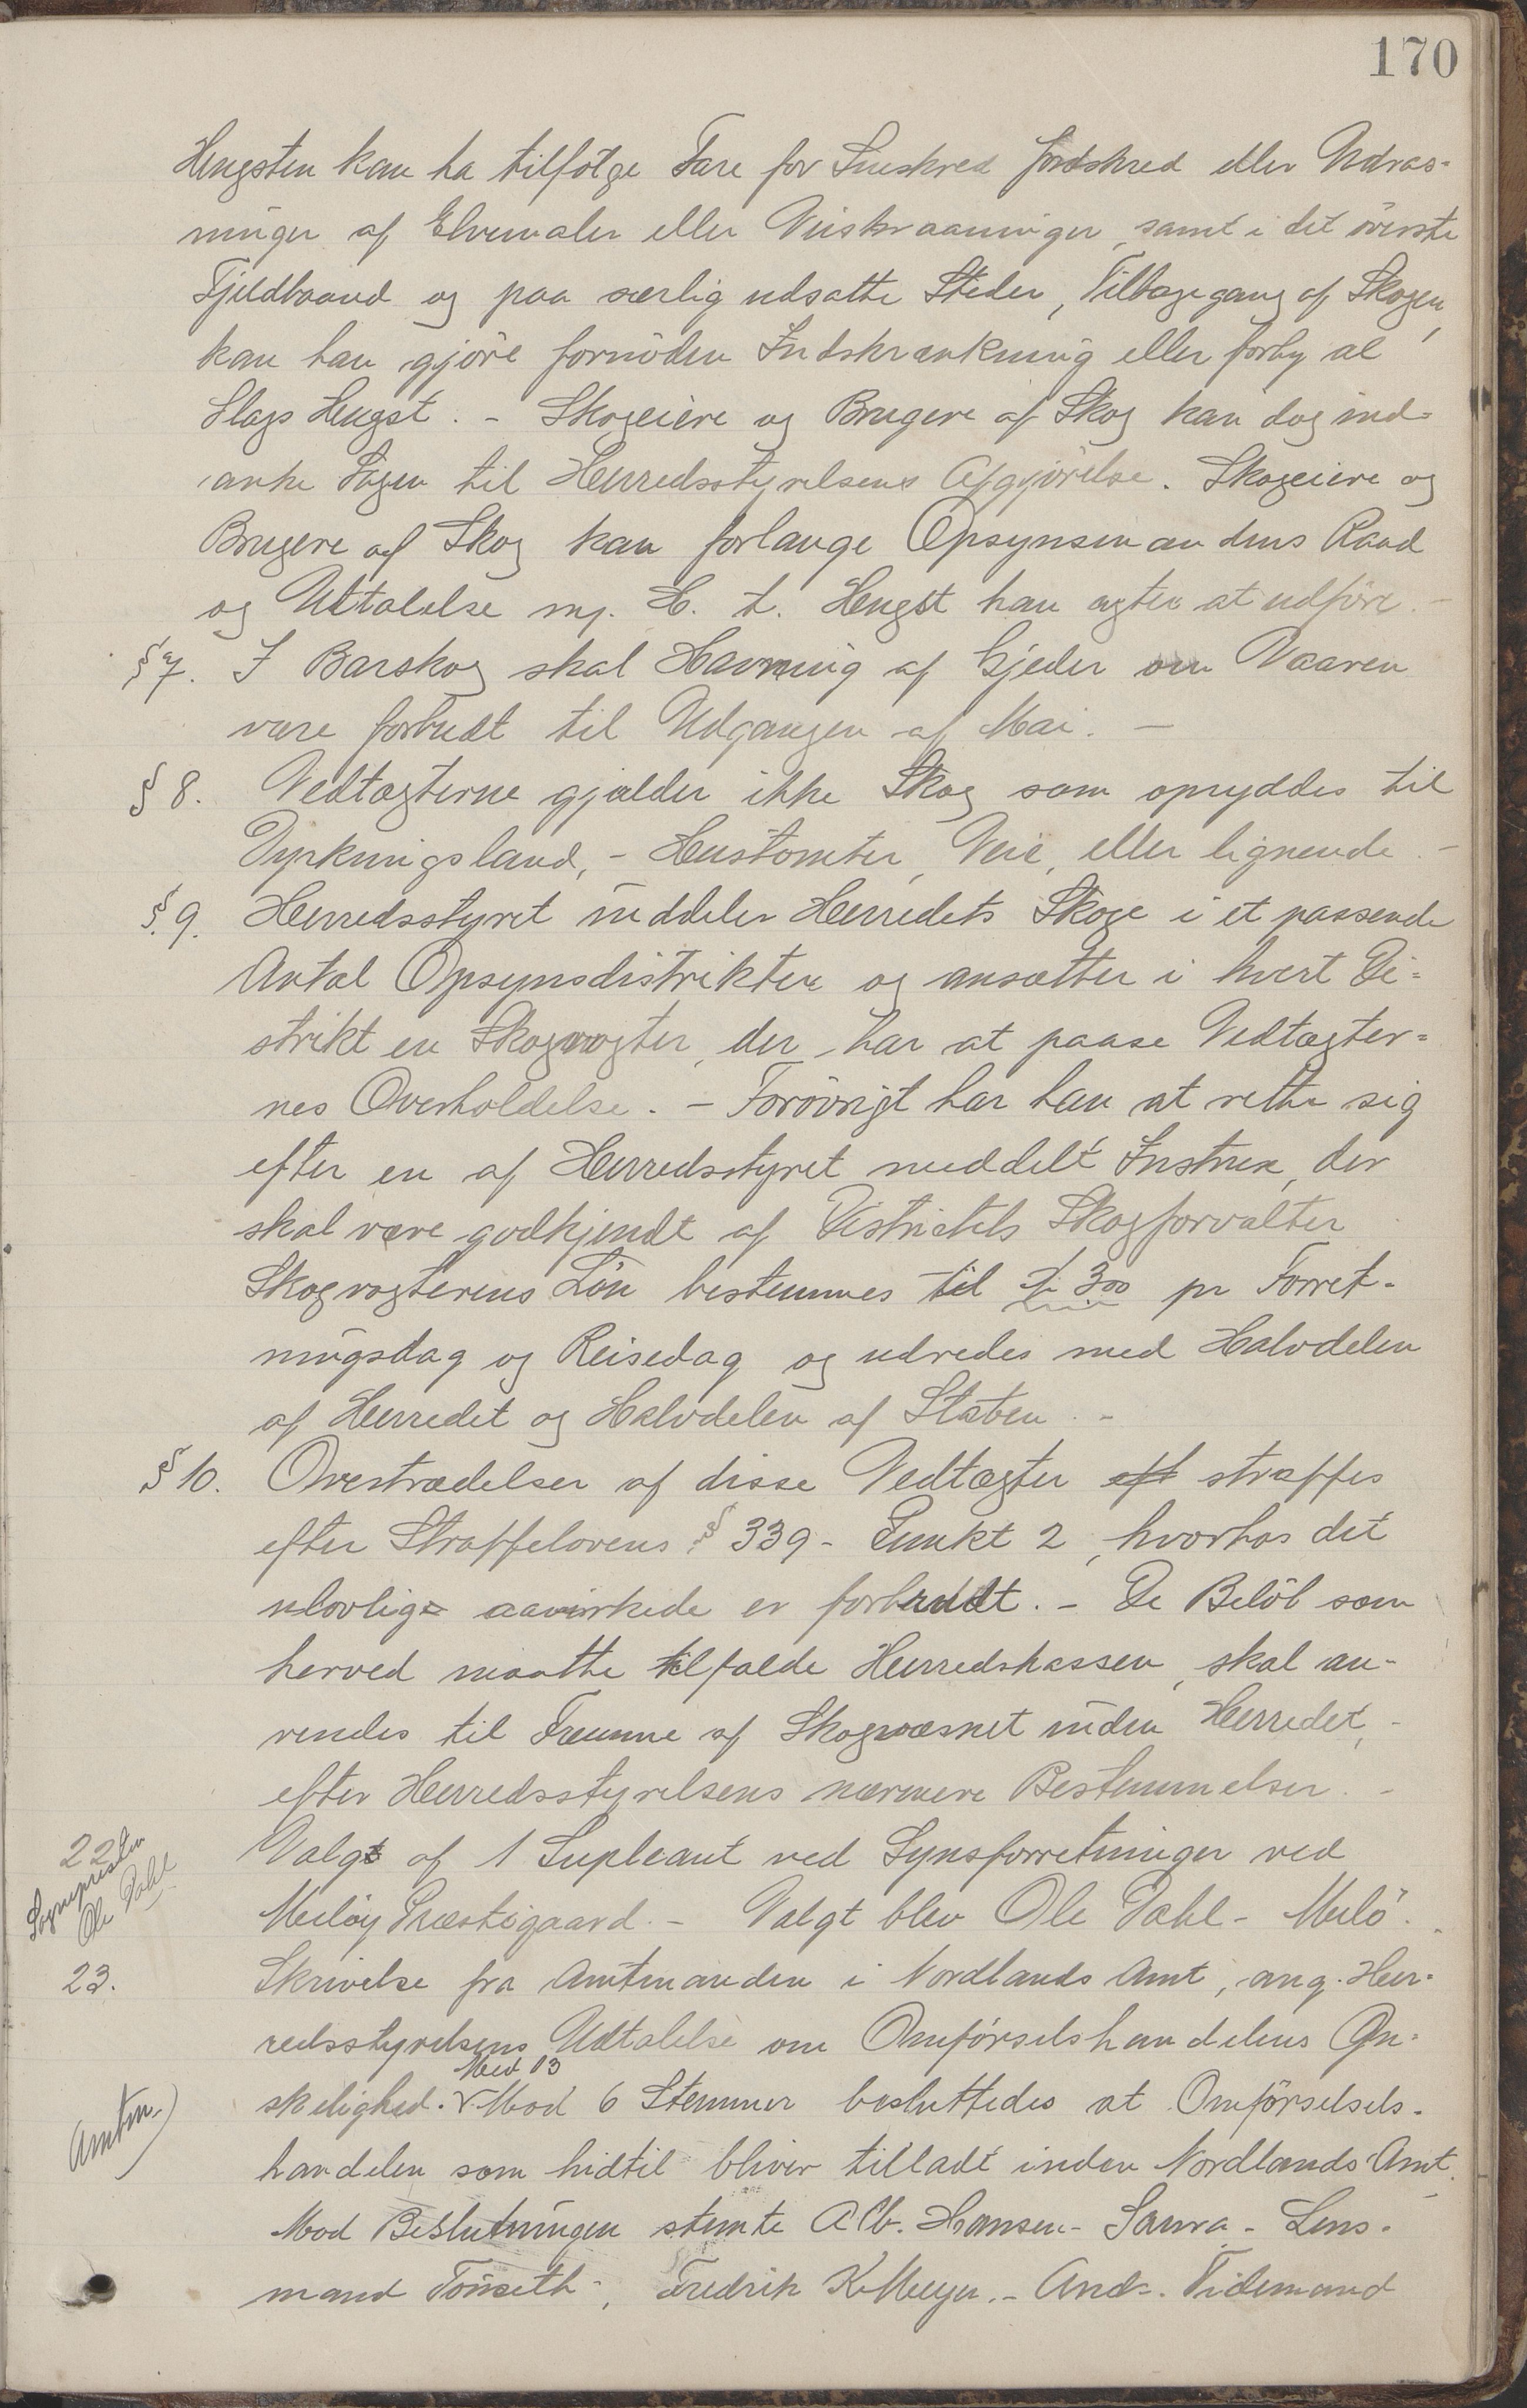 170
Hugsten kan ha tilfølge Fare for Sneskred Jordskred eller Udras-
ninger af Elvemæler eller Veiskraaninger, samt i det øverste
Fjeldbaand og paa særlig udsatte Steder, Tilbagegang af Skogen,
kan han gjöre fornöden Indskrænkning eller forby al
Slags Hugst. - Skogeiere og Brugere af Skog kan dog ind-
anke Sagen til Herredsstyrelsens Afgjörelse. Skogeiere og
Brugere af Skog kan forlange Opsynsmandens Raad
og Uttalelse m. H. t. Hugst han agter at udföre. -
§ 7. I Barskog skal Havning af Gjeder om Vaaren
være forbudt til Udgangen af Mai. -
§ 8. Vedtægterne gjælder ikke Skog som opryddes til
Dyrkningsland, - Hustomter, Veie, eller lignende. -
§. 9. Herredsstyret inddeler Herredets Skoge i et passende
Antal Opsynsdistrikter og ansætter i hvert Di-
strikt en Skogvogter, der har at paase Vedtægter-
nes Overholdelse. - Forövrigt har han at rette sig
efter en af Herredsstyret meddelt Instrux, der
skal være godkjendt af Distriktets Skogforvalter
Skogvogterens Lön bestemmes til Kr 3oo pr Forret-
ningsdag og Reisedag og udredes med Halvdelen
af Herredet og Halvdelen af Staten. -
§ 10. Overtrædelser af disse Vedtægter eft straffes
efter Straffelovens § 339 - Punkt 2, hvorhos det
ulovlig aavirkede er forbrudt. - De Belöb som
herved maatte tilfalde Herredskassen, skal an-
vendes til Fremme af Skogvæsnet inden Herredet, -
efter Herredsstyrelsens nærmere Bestemmelser. -
22 Valgt af 1 Supleant ved Synsforretninger ved
Sognepresten
Ole Dahl
Melöy Præstegaard. - Valgt blev Ole Dahl - Melö.
23. Skrivelse fra Amtmanden i Nordlands Amt, ang. Her-
redsstyrelsens Udtalelse om Omförselshandelens Øn-
Med 13
skelighed. V Mod 6 Stemmer besluttedes at Omförselsels-
Amtm.
handelen som hidtil bliver tilladt inden Nordlands Amt.
Mod Beslutningen stemte Alb. Hansen - Saura - Lens-
mand Tönseth -, Fredrik K. Meyer. - And. Tidemand